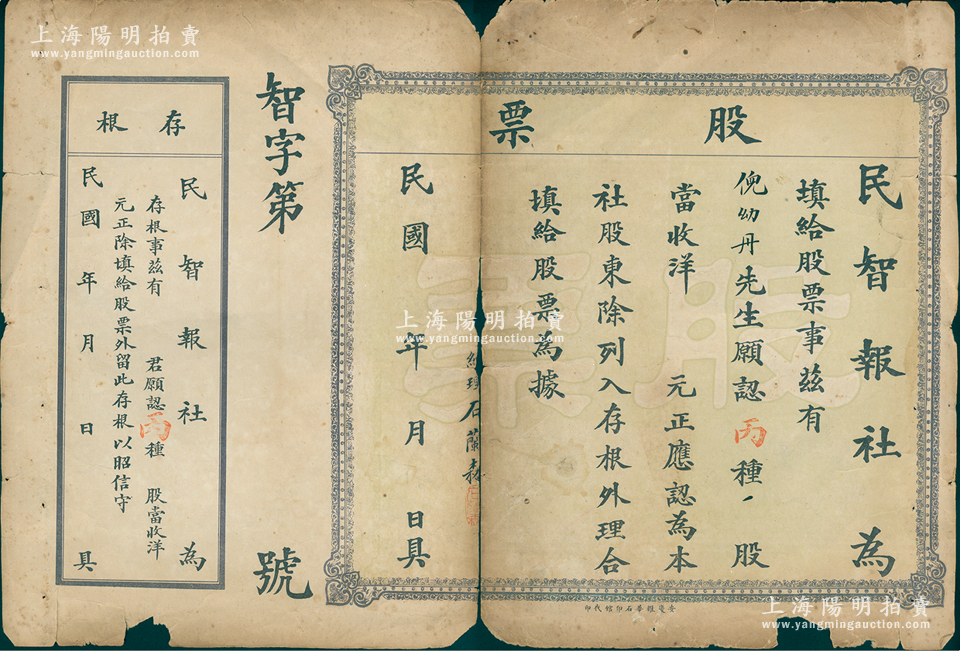 股票
民智報社為
填給股票事茲有
倪幼丹先生願認丙種、股
當收洋 元正應認為本
社股東除列入存根外理合
填給股票為據
經理石蘭森
民國 年 月 日具
安慶維華石印館代印
智字第 號
存根
民智報社為
存根事茲有 君願認丙種 股當收洋
元正除填給股票外留此存根以昭信守
民國 年 月 日具
上海陽明拍賣
www.yangmingauction.com
上海陽明拍賣
www.yangmingauction.com
上海陽明拍賣
www.yangmingauction.com
股票